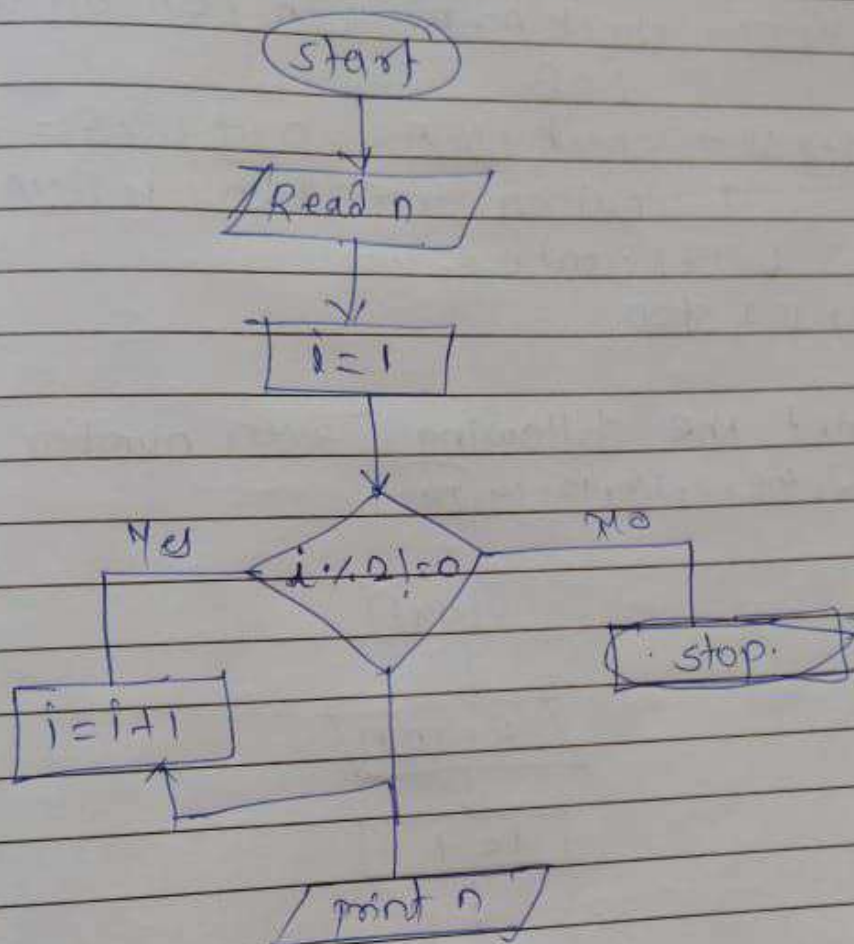 start
Read n
i = 1
Yes
i % 2 != 0
No
stop.
i = i + 1
print n